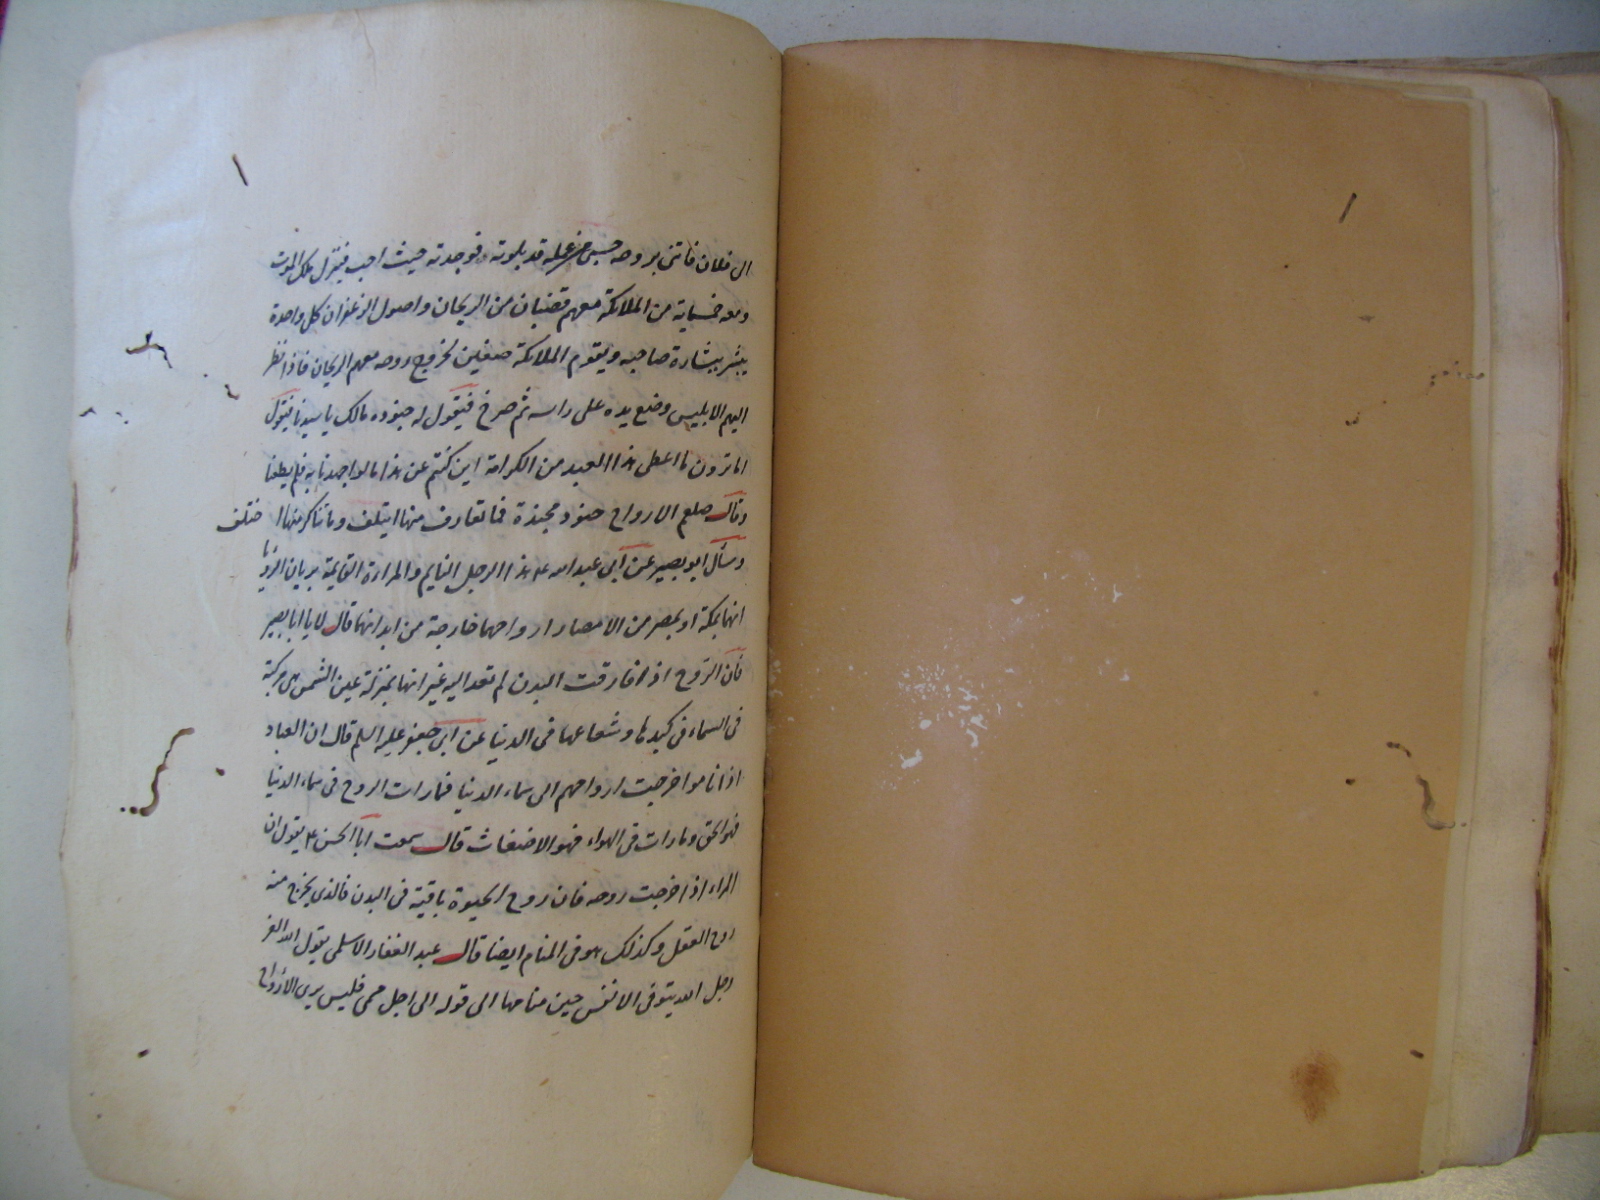 الى فلان فاتنى بروحه حسبى من عمله قد بلوته فوجدته حيث احب فينزل ملك الموت
ومعه خمسماية من الملائكة معهم قضبان من الريحان واصول الزعفران كل واحدة
يبشر ببشارة صاحبه ويقوم الملائكة صفين لخروج روحه معهم الريحان فاذا نظر
اليهم الابليس وضع يده على راسه ثم صرخ فيقول له جنوده مالك يا سيدنا فيقول
اما ترون ما اعطى هذا العبد من الكرامة اين كنتم عن هذا قالوا جهدنا به فلم يطعنا
وقال صلعم الارواح جنود مجندة فما تعارف منها ايتلف وما تناكر منها اختلف
وسأل ابو بصير عن أبى عبد الله ع هذا الرجل النايم والمراءة القايمة يريان الرؤيا
انها بمكة او بمصر من الامصار ارواحهما خارجة من ابدانهما قال لا يا ابا بصير
فأن الرّوح اذا فارقت البدن لم تعد اليه غير انها بمنزلة عين الشمس هى مركبة
فى السماء فى كبدها وشعاعها فى الدنيا عن ابى جعفر عليه السلم قال ان العباد
اذا ناموا خرجت ارواحهم الى سماء الدنيا فما رات الروح فى سماء الدنيا
فهو الحق وما رات فى الهواء فهو الاضغاث قال سمعت ابا الحسن ع يقول ان
المراء اذا خرجت روحه فان روح الحيوة باقية فى البدن فالذى يخرج منه
روح العقل وكذلك هو فى المنام ايضا قال عبد الغفار الاسلمى يقول الله
وجل الله يتوفى الانفس حين منامها الى قوله الى اجل مسمى فليس يرى الارواح